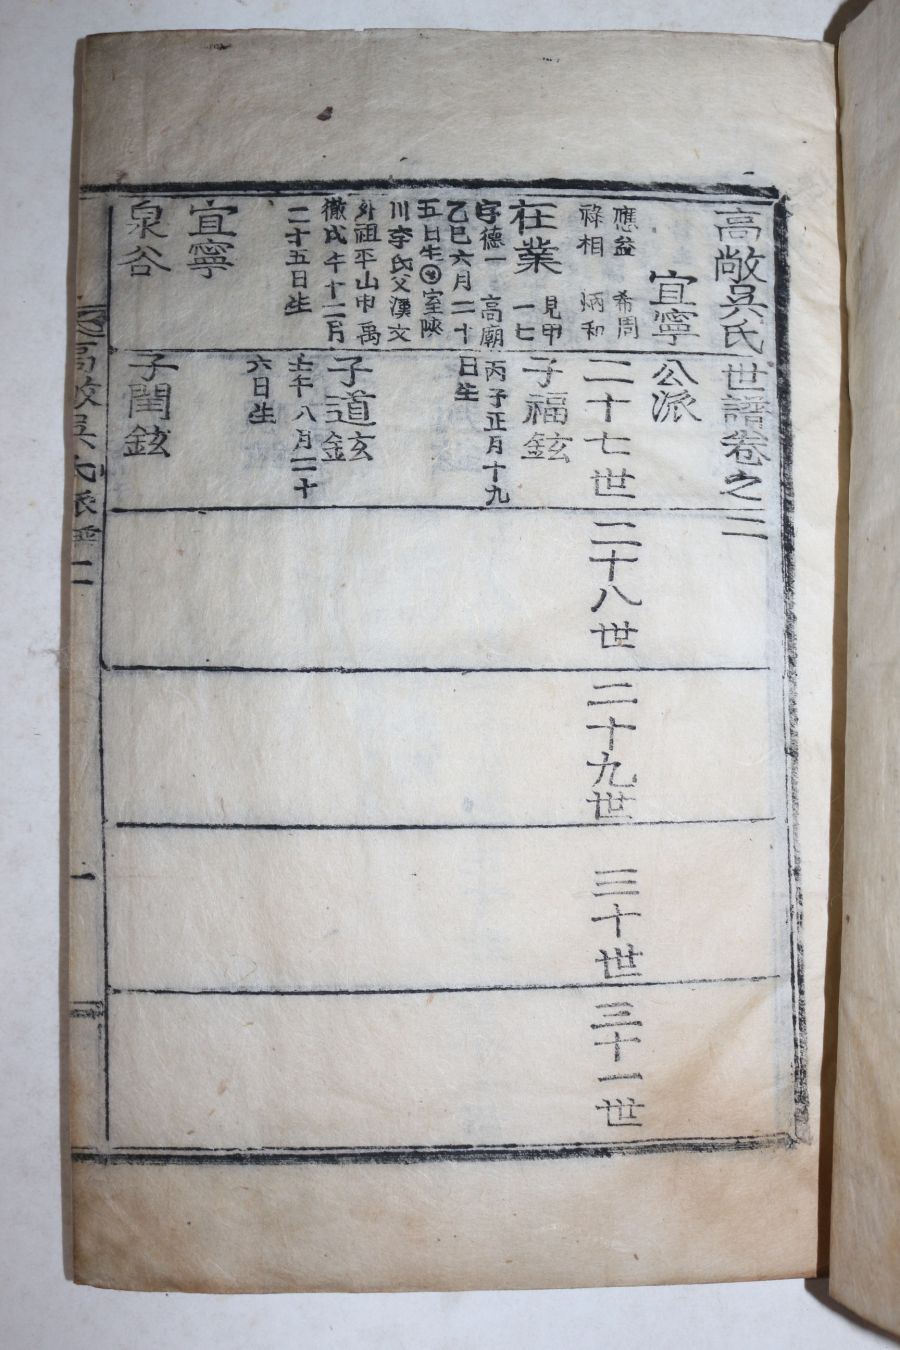 高敞吳氏世譜卷之二
宜寧公派
應益 希周
祿相 炳和
二十七世
二十八世
二十九世
三十世
三十一世
在業 見甲一七
字德一 高廟
乙巳六月二十
五日生 室陜
川李氏父漢文
外祖平山申禹
徹戊午十二月
二十五日生
宜寧
泉谷
子福鉉
丙子正月十九
日生
子道鉉
壬午八月二十
六日生
子閏鉉
高敞吳氏派譜 二
一